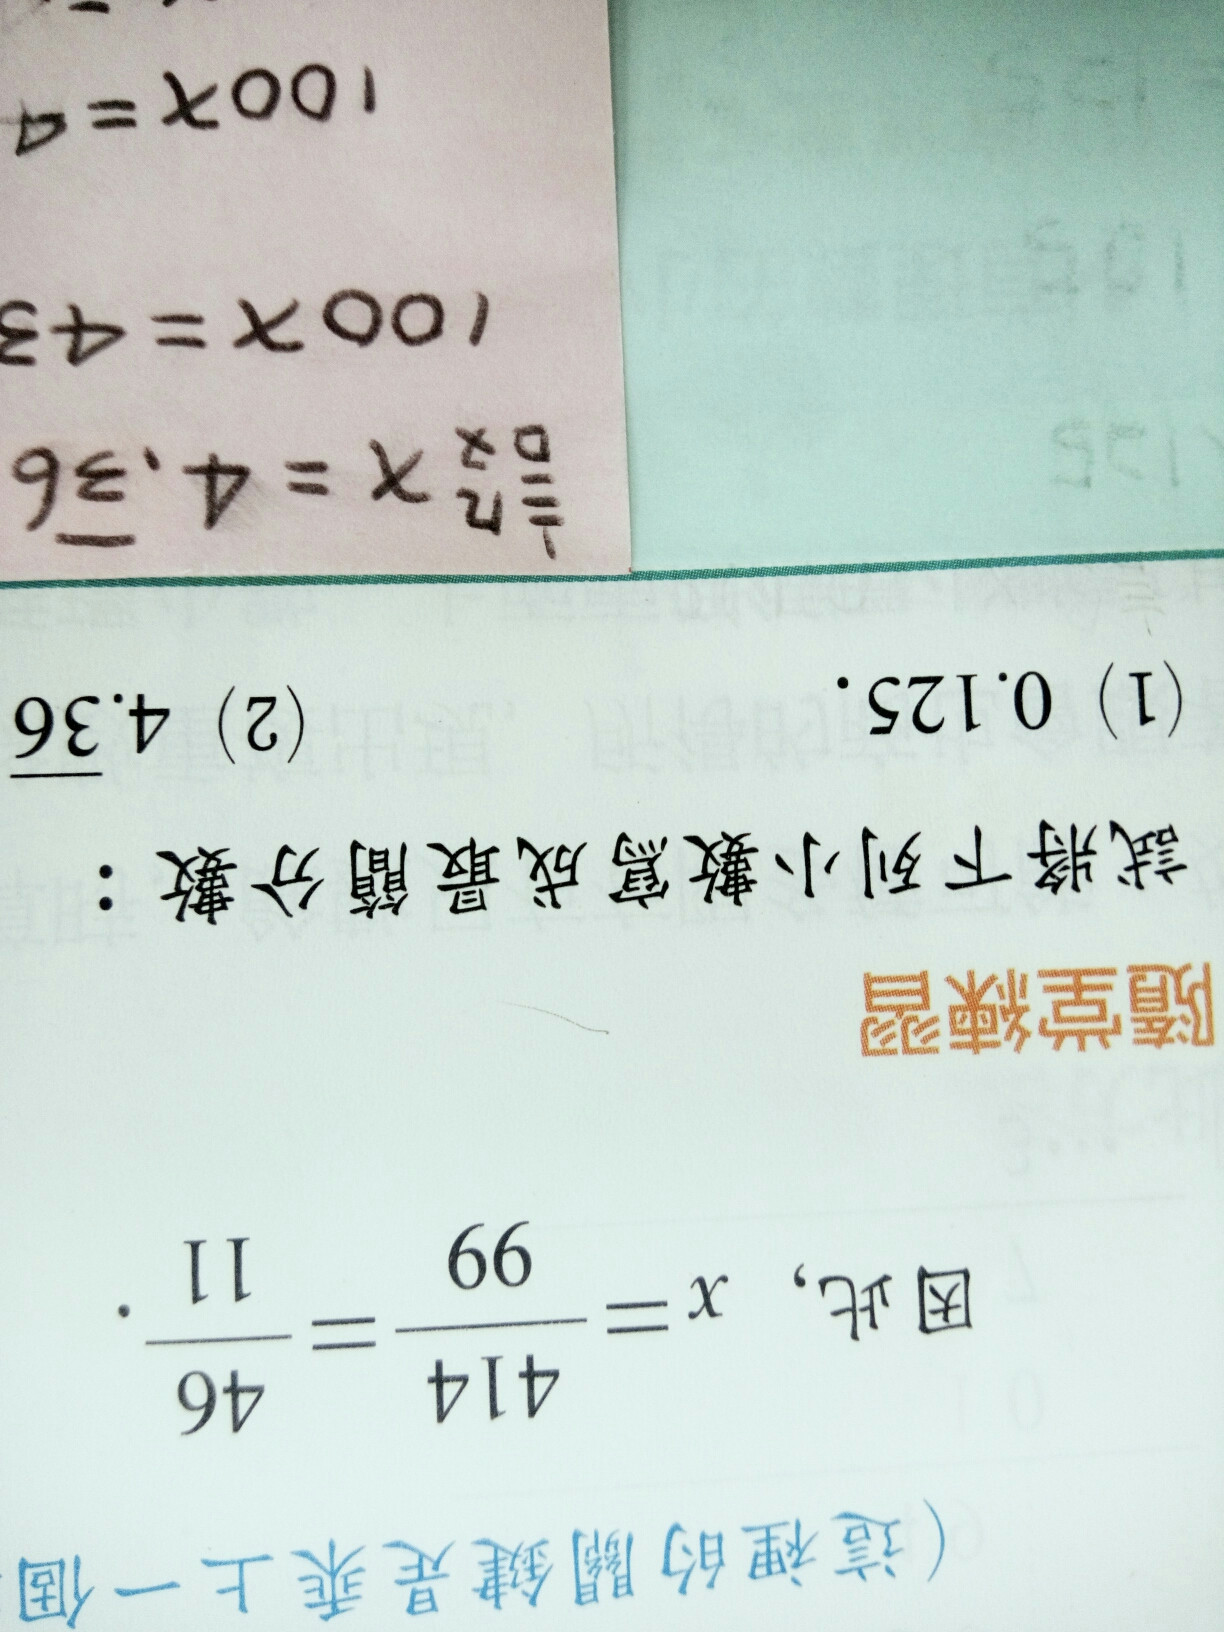 (這裡的關鍵是乘上一個
因此, x = 414/99 = 46/11 .
隨堂練習
試將下列小數寫成最簡分數：
(1) 0.125. (2) 4.3̅6̅
x = 4.3̅6̅
100x = 43
100x = 4